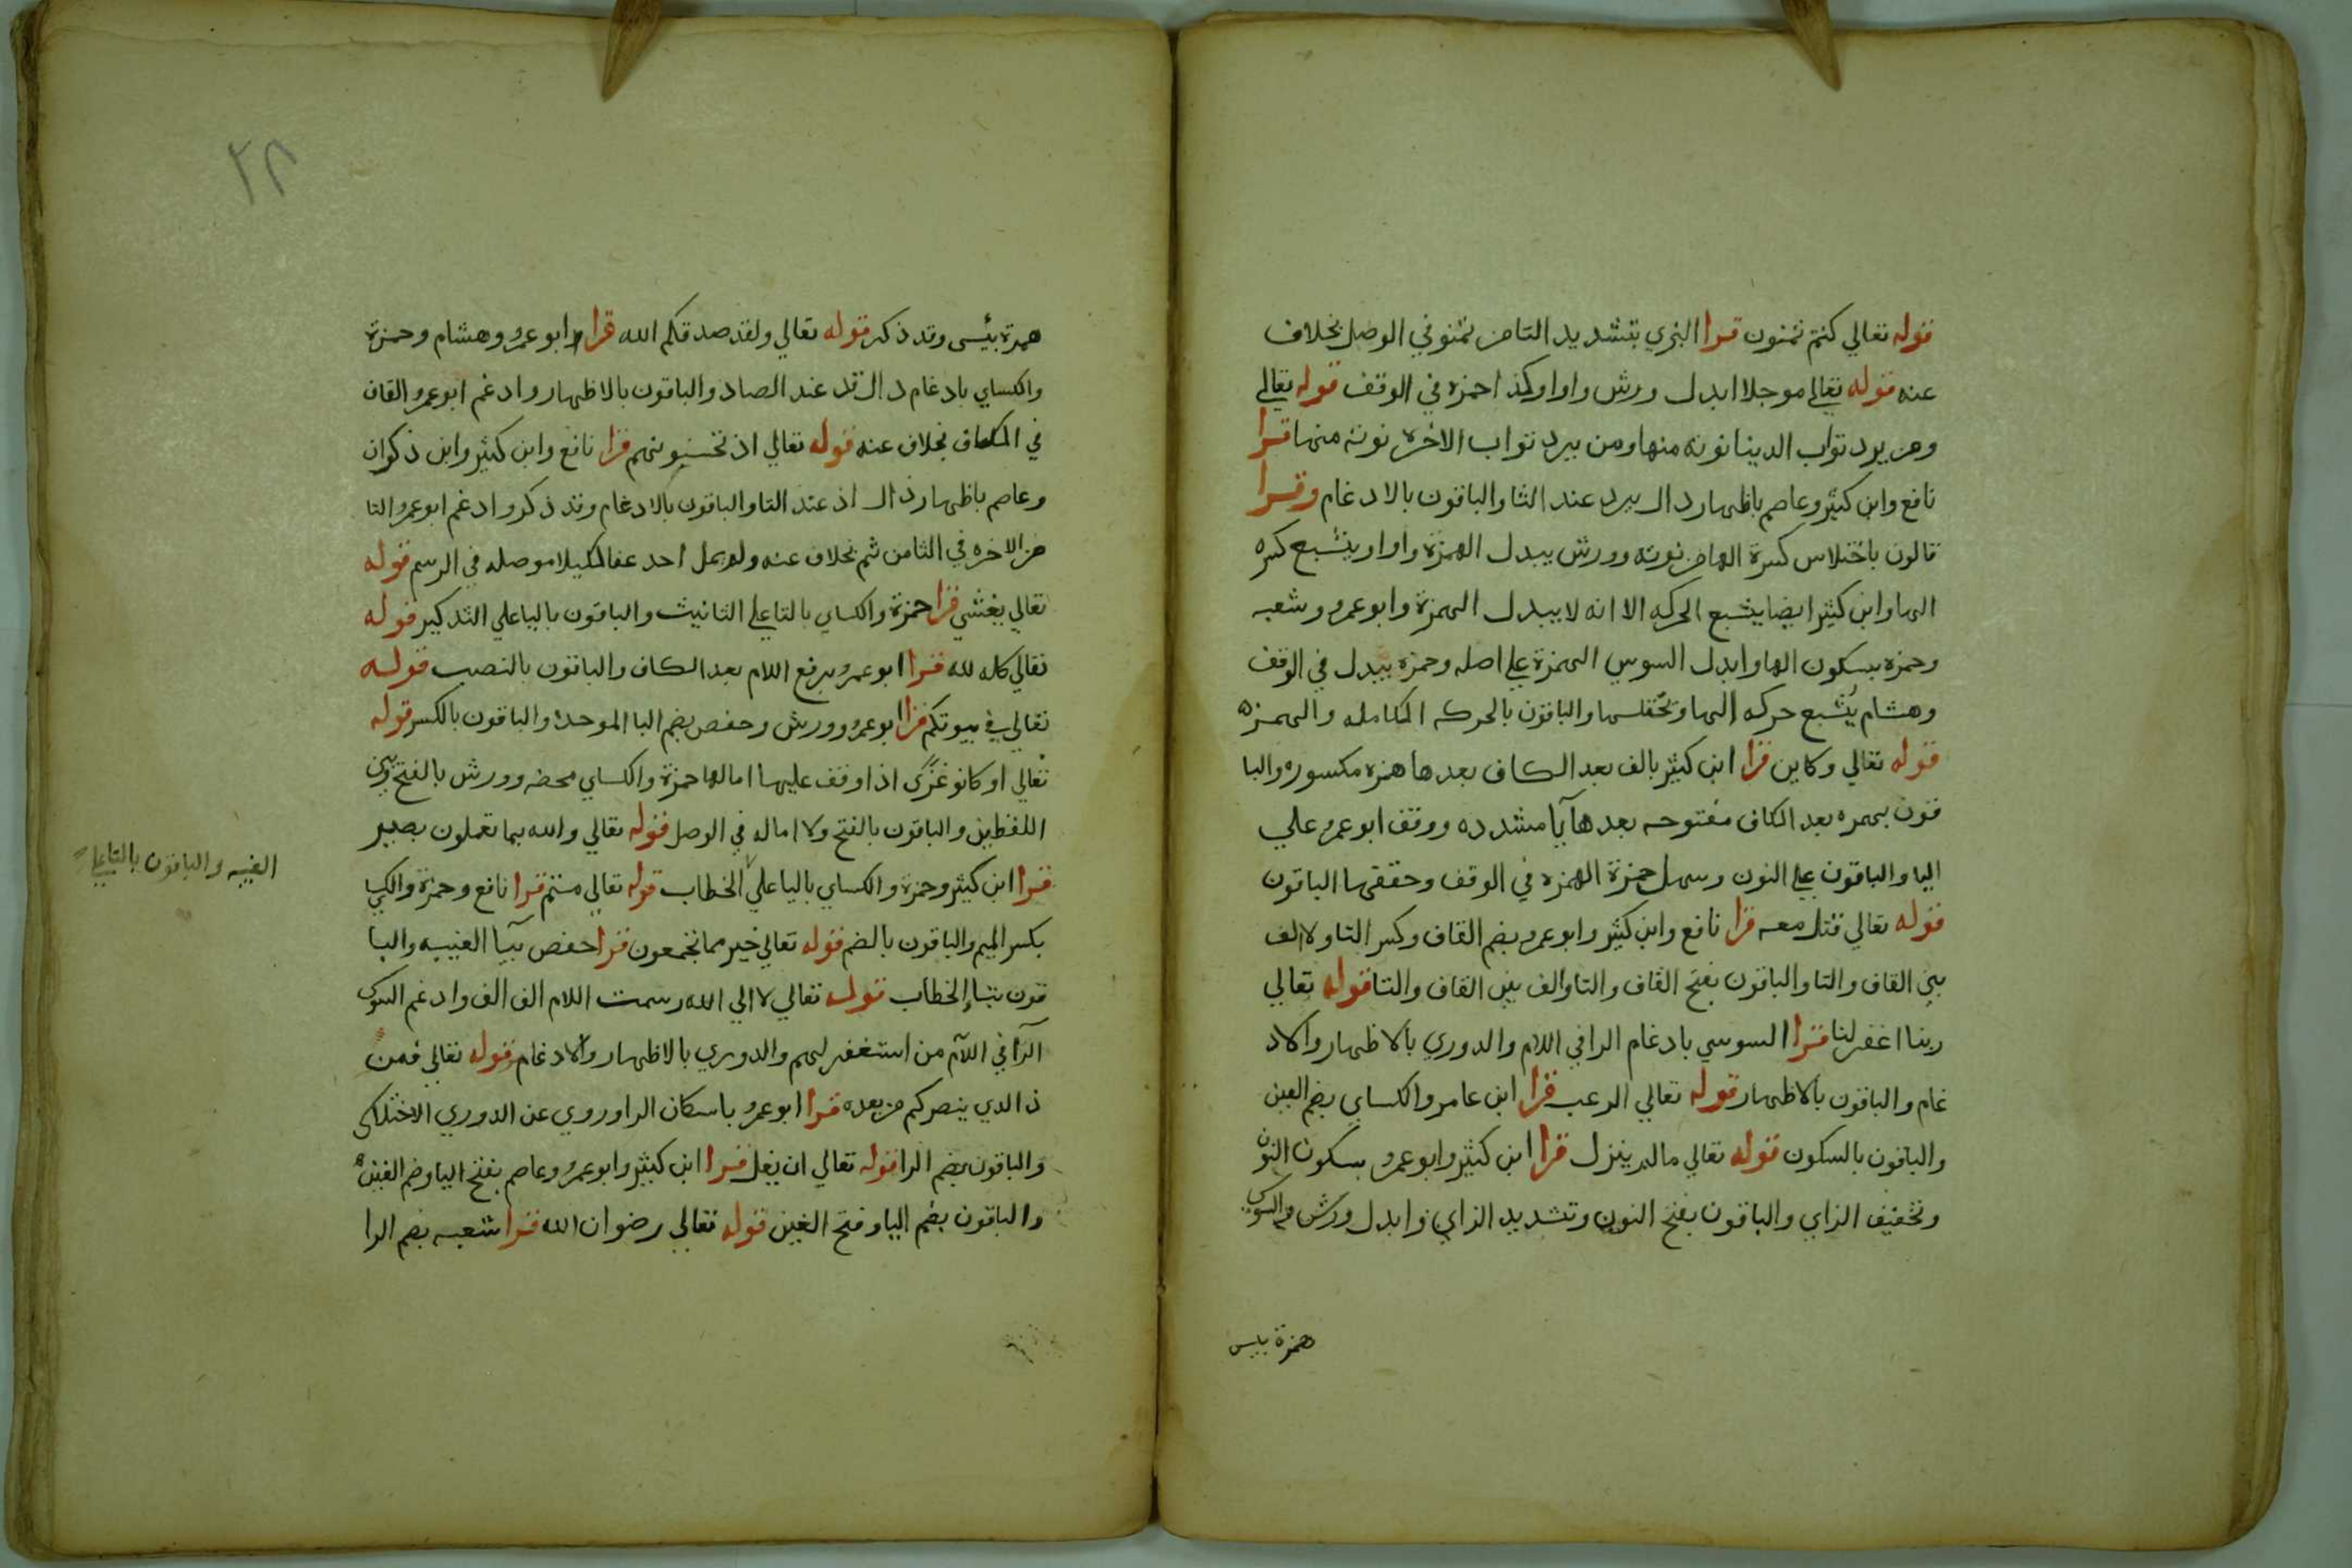 قوله تعالي كنتم تمنون قرا البزي بتشديد التا من تمنو في الوصل بخلاف
عنه قوله تعالي موجلا ابدل ورش واوا وكذا حمزه في الوقف قوله تعالي
ومن يرد ثواب الدينا نوته منها ومن يرد ثواب الاخره نوته منها قرا
نافع وابن كثير وعاصم باظهار دال يرد عند الثا والباقون بالادغام وقرا
قالون باختلاس كسرة الها من نوته وورش يبدل الهمزة واوا ويشبع كسره
الها وابن كثير ايضا يشبع الحركه الا انه لا يبدل الهمزة وابو عمرو وشعبه
وحمزه بسكون الها وابدل السوسي الهمزة علي اصله وحمزه يبدل في الوقف
وهشام يُشبع حركه الها ويختلسها والباقون بالحركه الكامله والهمزه
قوله تعالي وكاين قرا ابن كثير بالف بعد الكاف بعدها همزه مكسوره والبا
قون بهمزه بعد الكاف مفتوحه بعدها يا مشدده ووقف ابو عمرو علي
اليا والباقون علي النون وسهل حمزة الهمزه في الوقف وحققها الباقون
قوله تعالي قتل معه قرا نافع وابن كثير وابو عمرو بضم القاف وكسر التا ولا الف
بين القاف والتا والباقون بفتح القاف والتا والف بين القاف والتا قوله تعالي
ربنا اغفر لنا قرا السوسي بادغام الرا في اللام والدوري بالاظهار والاد
غام والباقون بالاظهار قوله تعالي الرعب قرا ابن عامر والكساي بضم العين
والباقون بالسكون قوله تعالي مالم ينزل قرا ابن كثير وابو عمرو بسكون النون
وتخفيف الزاي والباقون بفتح النون وتشديد الزاي وابدل ورش والسوسي
همزة بايس
٢٨
همزة بئسى وقد ذكر قوله تعالي ولقد صدقكم الله قرا ابو عمرو وهشام وحمزة
والكساي بادغام دال قد عند الصاد والباقون بالاظهار وادغم ابو عمرو القاف
في الكاف بخلاف عنه قوله تعالي اذ تحسونهم قرا نافع وابن كثير وابن ذكوان
وعاصم باظهار ذال اذ عند التا والباقون بالادغام وقد ذكر وادغم ابو عمرو التا
من الاخره في الثا من ثم بخلاف عنه ولم يمل احد عفا لكيلا موصله في الرسم قوله
تعالي يغشي قرا حمزة والكساي بالتا علي التانيث والباقون باليا علي التدكير قوله
تعالي كله لله قرا ابو عمرو برفع اللام بعد الكاف والباقون بالنصب قوله
تعالي في بيوتكم قرا ابو عمرو وورش وحفص بضم البا الموحدا والباقون بالكسر قوله
تعالي او كانو غزًّى اذا وقف عليها امالها حمزة والكساي محضه وورش بالفتح وبين
اللفظين والباقون بالفتح ولا اماله في الوصل قوله تعالي والله بما تعملون بصير
قرا ابن كثير وحمزة والكساي باليا علي الخطاب قوله تعالي متم قرا نافع وحمزة والكسا
الغيبه والباقون بالتا علي
بكسر الميم والباقون بالضم قوله تعالي خير مما تجمعون قرا حفص بيا الغيبه والبا
قون بتا الخطاب قوله تعالي لا الي الله رسمت اللام الف الف وادغم السوسي
الرا في اللام من استغفر لهم والدوري بالاظهار والادغام قوله تعالي فمن
ذا الدي ينصركم من بعده قرا ابو عمرو باسكان الرا وروي عن الدوري الاختلاس
والباقون بضم الرا قوله تعالي ان يغل قرا ابن كثير وابو عمرو وعاصم بفتح اليا وضم الغين
والباقون بضم اليا وفتح الغين قوله تعالي رضوان الله قرا شعبه بضم الرا